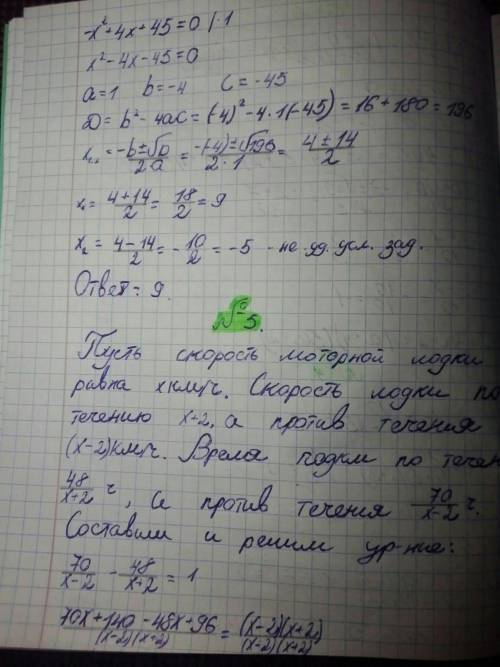 -x²+4x+45=0 /·1
x²-4x-45=0
a=1 b=-4 c=-45
D=b²-4ac=(-4)²-4·1(-45)=16+180=196
x₁,₂=(-b±√D)/2a=(-(-4)±√196)/(2·1)=(4±14)/2
x₁=(4+14)/2=18/2=9
x₂=(4-14)/2=-10/2=-5 - не уд. усл. зад.
Ответ: 9.
№5.
Пусть скорость моторной лодки
равна x км/ч. Скорость лодки по
течению x+2, а против течения
(x-2)км/ч. Время лодки по течен
48/(x+2) ч, а против течения 70/(x-2) ч.
Составим и решим ур-ние:
70/(x-2) - 48/(x+2) = 1
(70x+140-48x+96)/((x-2)(x+2)) = ((x-2)(x+2))/((x-2)(x+2))